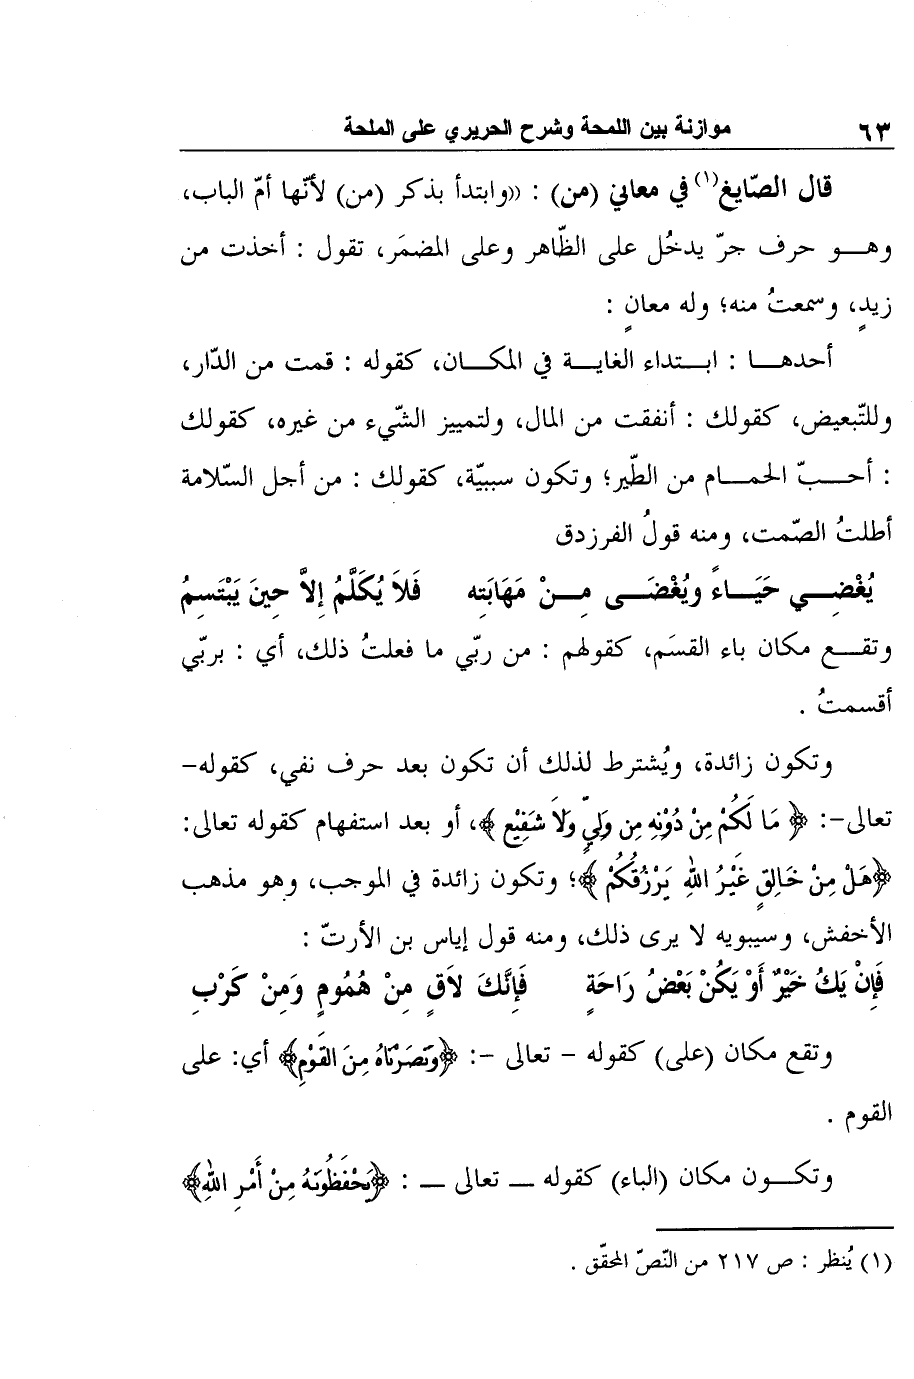 ٦٣ موازنة بين اللمحة وشرح الحريري على الملحة
قال الصّايغ(١) في معاني (من) : ((وابتدأ بذكر (من) لأنّها أمّ الباب،
وهـو حرف جرّ يدخُل على الظّاهر وعلى المضمَر، تقول : أخذت من
زيدٍ، وسمعتُ منه؛ وله معانٍ :
أحدهـا : ابـتداء الغايـة في المكـان، كقوله : قمت من الدّار،
وللتّبعيض، كقولك : أنفقت من المال، ولتمييز الشّيء من غيره، كقولك
: أحـبّ الحمـام من الطّير؛ وتكون سببيّة، كقولك : من أجل السّلامة
أطلتُ الصّمت، ومنه قولُ الفرزدق
يُغْضِـي حَيَـاءً ويُغْضَـى مِـنْ مَهَابَتِه فَلاَ يُكَلَّمُ إِلاَّ حِينَ يَبْتَسِمُ
وتقـع مكان باء القسَم، كقولهم : من ربّي ما فعلتُ ذلك، أي : بربّي
أقسمتُ .
وتكون زائدة، ويُشترط لذلك أن تكون بعد حرف نفي، كقوله-
تعالى-: ﴿ مَا لَكُمْ مِنْ دُوْنِهِ مِن وَلِيٍّ وَلاَ شَفِيْعٍ ﴾، أو بعد استفهام كقوله تعالى:
﴿هَلْ مِنْ خَالِقٍ غَيْرُ اللهِ يَرْزُقُكُمْ ﴾؛ وتكون زائدة في الموجب، وهو مذهب
الأخفش، وسيبويه لا يرى ذلك، ومنه قول إياس بن الأرتّ :
فَإِنْ يَكُ خَيْرٌ أَوْ يَكُنْ بَعْضُ رَاحَةٍ فَإِنَّكَ لاَقٍ مِنْ هُمُومٍ وَمِنْ كَرْبِ
وتقع مكان (على) كقوله - تعالى -: ﴿وَنَصَرْنَاهُ مِنَ القَوْمِ﴾ أي: على
القوم .
وتكـون مكان (الباء) كقوله ــ تعالى ــ : ﴿يَحْفَظُونَهُ مِنْ أَمْرِ اللهِ﴾
(١) يُنظر : ص ٢١٧ من النّصّ المحقّق .